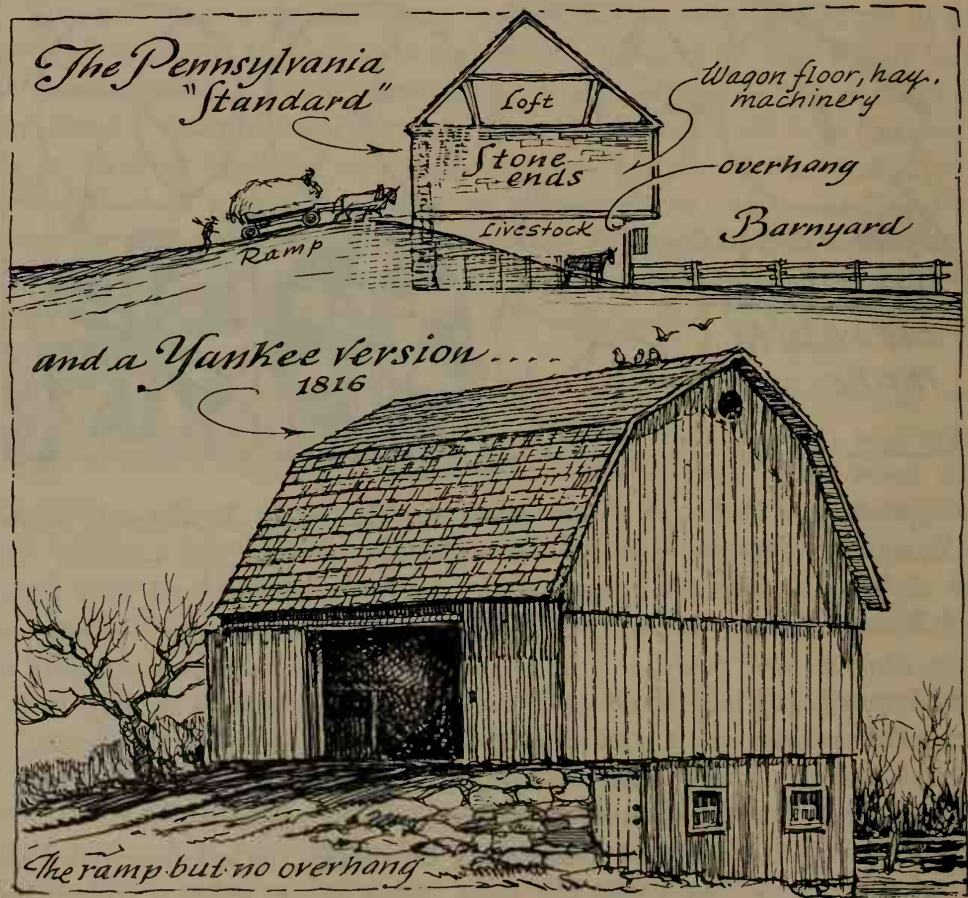 The Pennsylvania
"Standard"
Loft
Wagon floor, hay,
machinery
Stone
ends
overhang
Livestock
Barnyard
Ramp
and a Yankee version ....
1816
The ramp but no overhang